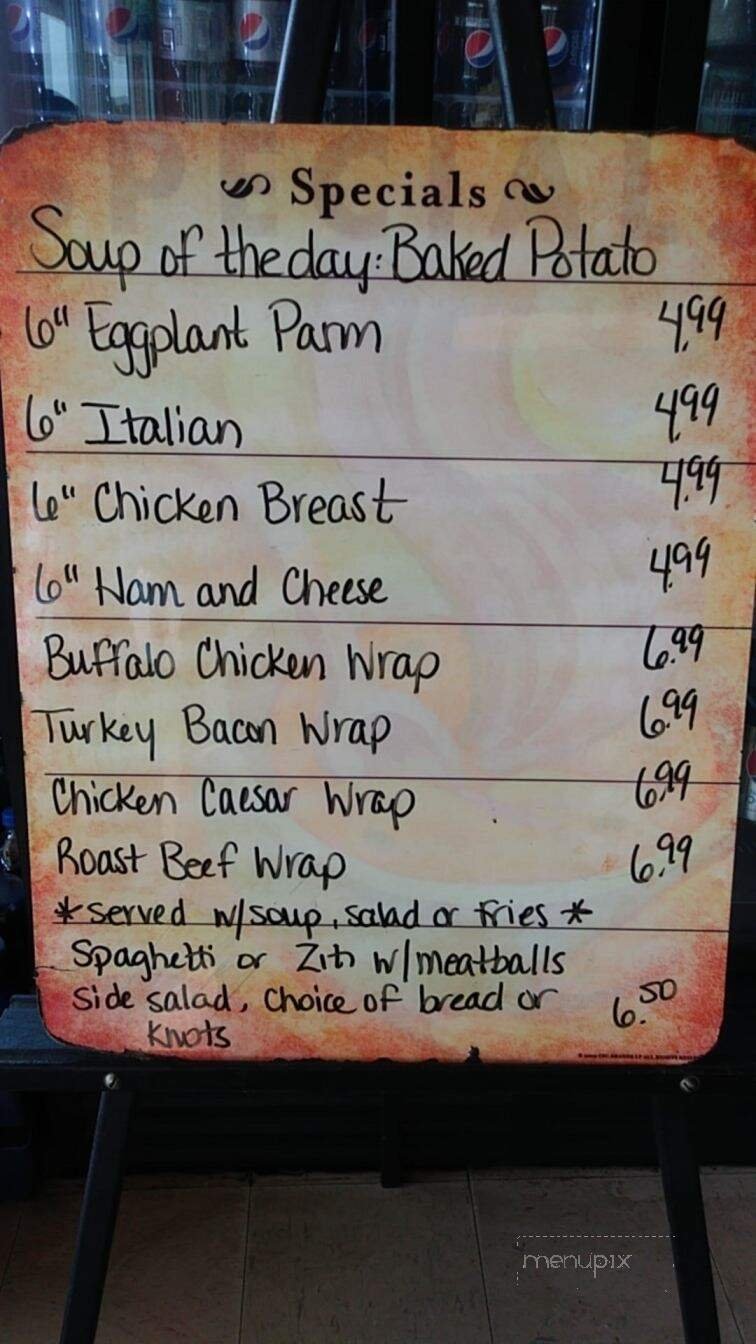 Specials
Soup of the day: Baked Potato
6" Eggplant Parm 4.99
6" Italian 4.99
6" Chicken Breast 4.99
6" Ham and Cheese 4.99
Buffalo Chicken Wrap 6.99
Turkey Bacon Wrap 6.99
Chicken Caesar Wrap 6.99
Roast Beef Wrap 6.99
*served w/soup, salad or fries*
Spaghetti or Ziti w/meatballs
side salad, choice of bread or 6.50
knots
menupix